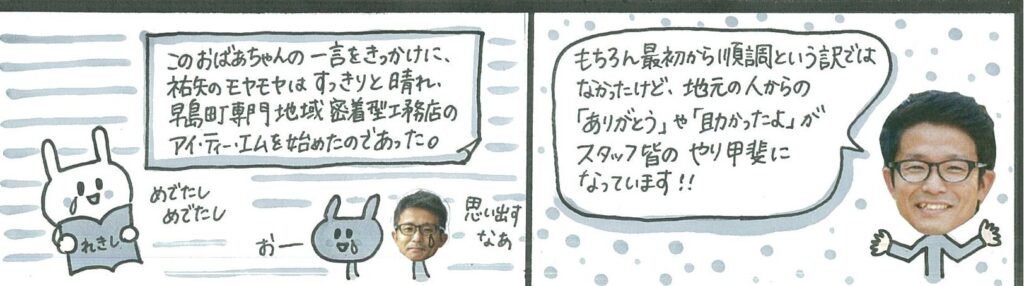 このおばあちゃんの一言をきっかけに、
祐矢のモヤモヤはすっきりと晴れ、
早島町専門地域密着型工務店の
アイ・ティー・エムを始めたのであった。
れきし
めでたし
めでたし
おー
思い出す
なあ
もちろん最初から順調という訳では
なかったけど、地元の人からの
「ありがとう」や「助かったよ」が
スタッフ皆のやり甲斐に
なっています!!